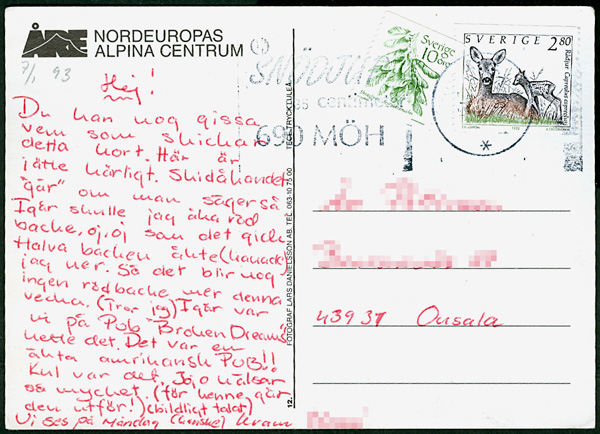 ÅRE
NORDEUROPAS
ALPINA CENTRUM
7/1 93
Hej!
Du kan nog gissa
vem som skickar
detta kort. Här är
jätte härligt. Skidåkandet
"går" om man säger så
Igår skulle jag åka röd
backe, oj, oj som det gick
Halva backen åkte (kanade)
jag ner. Så det blir nog
ingen röd backe mer denna
vecka. (Tror jag) Igår var
vi på Pub "Broken Dreams"
hette det. Det var en
äkta amrikansk PUB!!
Kul var det. Jojo hälsar
så mycket. (för henne går
den utför!) (bildligt talat)
Vi ses på Måndag (kanske) Kram
12.
FOTOGRAF LARS DANIELSSON AB TEL. 063-10 75 00
TEGE-TRYCK LULEÅ
SNÖDJUP
centimeter
690 MÖH
Sverige
10 öre
SVERIGE 2.80
Rådjur Capreolus capreolus
43937 Onsala